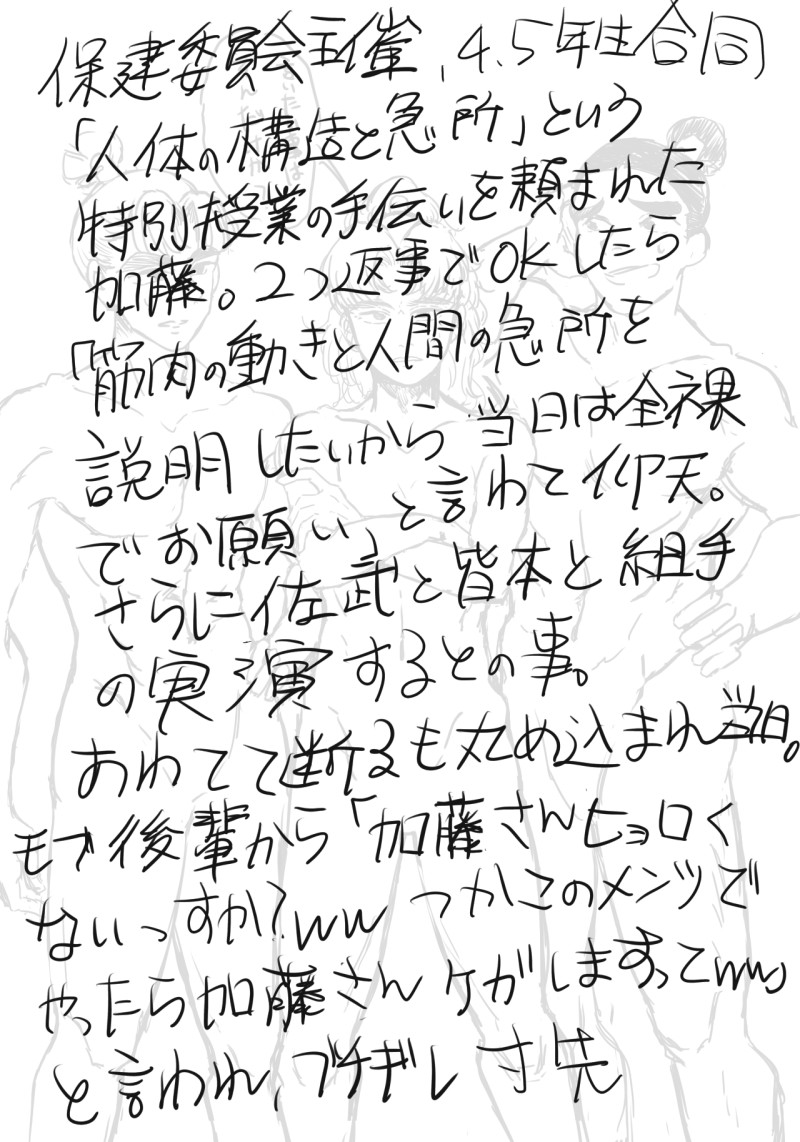 保建委員会主催、4.5年生合同
「人体の構造と急所」という
特別授業の手伝いを頼まれた
加藤。2つ返事でOKしたら
「筋肉の動きと人間の急所を
説明したいから当日は全裸
でお願い」と言われて仰天。
さらに佐武と皆本と組手
の実演するとの事。
あわてて断るも丸め込まれ当日。
モブ後輩から「加藤さんヒョロく
ないっすか?ww つかこのメンツで
やったら加藤さんケガしますってwww」
と言われ、ブチギレ寸先